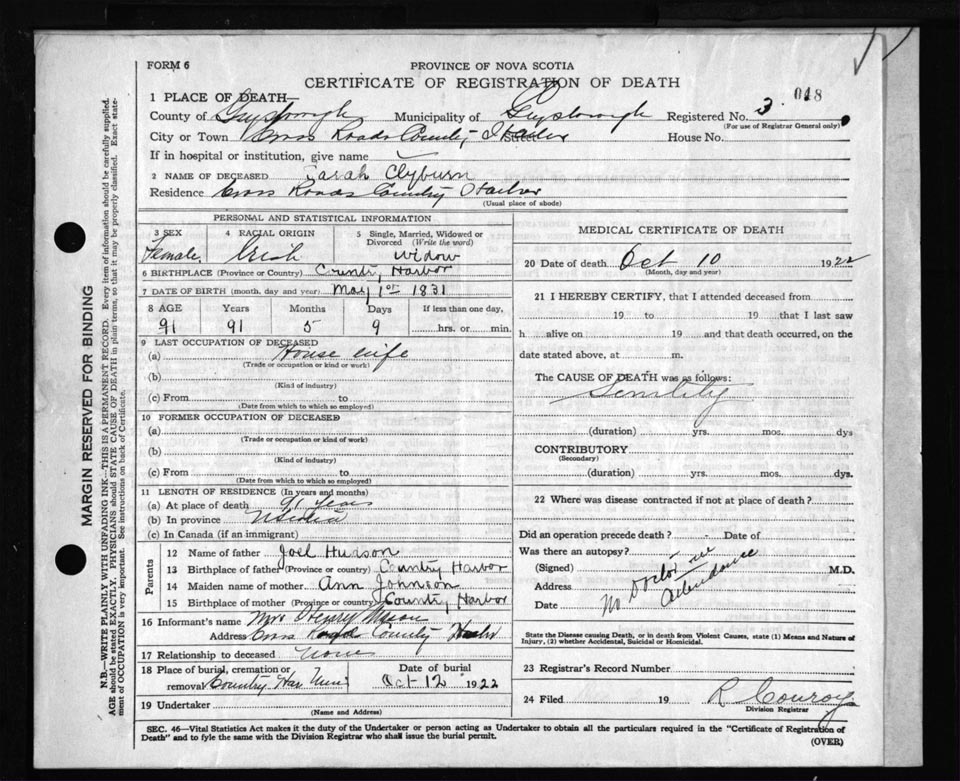 FORM 6
PROVINCE OF NOVA SCOTIA
CERTIFICATE OF REGISTRATION OF DEATH
1 PLACE OF DEATH—
County of Guysborough Municipality of Guysborough Registered No. 3 018
(For use of Registrar General only)
City or Town Cross Roads Country Harbor Street House No.
If in hospital or institution, give name
2 NAME OF DECEASED Sarah Clyburn
Residence Cross Roads Country Harbor
(Usual place of abode)
PERSONAL AND STATISTICAL INFORMATION
3 SEX 4 RACIAL ORIGIN 5 Single, Married, Widowed or Divorced (Write the word)
Female Irish Widow
6 BIRTHPLACE (Province or Country) Country Harbor
7 DATE OF BIRTH (month, day and year) May 1st 1831
8 AGE Years Months Days If less than one day,
91 91 5 9 hrs. or min.
9 LAST OCCUPATION OF DECEASED
(a) House wife
(Trade or occupation or kind or work)
(b)
(Kind of industry)
(c) From to
(Date from which to which so employed)
10 FORMER OCCUPATION OF DECEASED
(a)
(Trade or occupation or kind of work)
(b)
(Kind of industry)
(c) From to
(Date from which to which so employed)
11 LENGTH OF RESIDENCE (In years and months)
(a) At place of death 91 years
(b) In province
(c) In Canada (if an immigrant)
Parents
12 Name of father Joel Hudson
13 Birthplace of father (Province or country) Country Harbor
14 Maiden name of mother Ann Johnson
15 Birthplace of mother (Province or country) Country Harbor
16 Informant's name Mrs Henry Mason
Address Cross Roads Country Harbor
17 Relationship to deceased None
18 Place of burial, cremation or removal Country Har Date of burial Oct 12 1922
19 Undertaker
(Name and Address)
MEDICAL CERTIFICATE OF DEATH
20 Date of death Oct 10 1922
(Month, day and year)
21 I HEREBY CERTIFY, that I attended deceased from
19 to 19 that I last saw
h alive on 19 and that death occurred, on the
date stated above, at m.
The CAUSE OF DEATH was as follows:
Senility
(duration) yrs. mos. dys
CONTRIBUTORY
(Secondary)
(duration) yrs. mos. dys.
22 Where was disease contracted if not at place of death?
Did an operation precede death? Date of
Was there an autopsy?
(Signed) M.D.
Address
Date
No Doctor in
attendance
State the Disease causing Death, or in death from Violent Causes, state (1) Means and Nature of
Injury, (2) whether Accidental, Suicidal or Homicidal.
23 Registrar's Record Number
24 Filed 19 R Conroy
Division Registrar
SEC. 46—Vital Statistics Act makes it the duty of the Undertaker or person acting as Undertaker to obtain all the particulars required in the "Certificate of Registration of
Death" and to fyle the same with the Division Registrar who shall issue the burial permit.
(OVER)
MARGIN RESERVED FOR BINDING
N.B.—WRITE PLAINLY WITH UNFADING INK—THIS IS A PERMANENT RECORD. Every item of information should be carefully supplied.
AGE should be stated EXACTLY. PHYSICIANS should STATE CAUSE OF DEATH in plain terms, so that it may be properly classified. Exact state-
ment of OCCUPATION is very important. See instructions on back of Certificate.